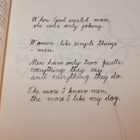 When God created man,
she was only joking.
Women like simple things
- men.
Men have only two faults:
everything they say
and everything they do.
The more I know men,
the more I like my dog.